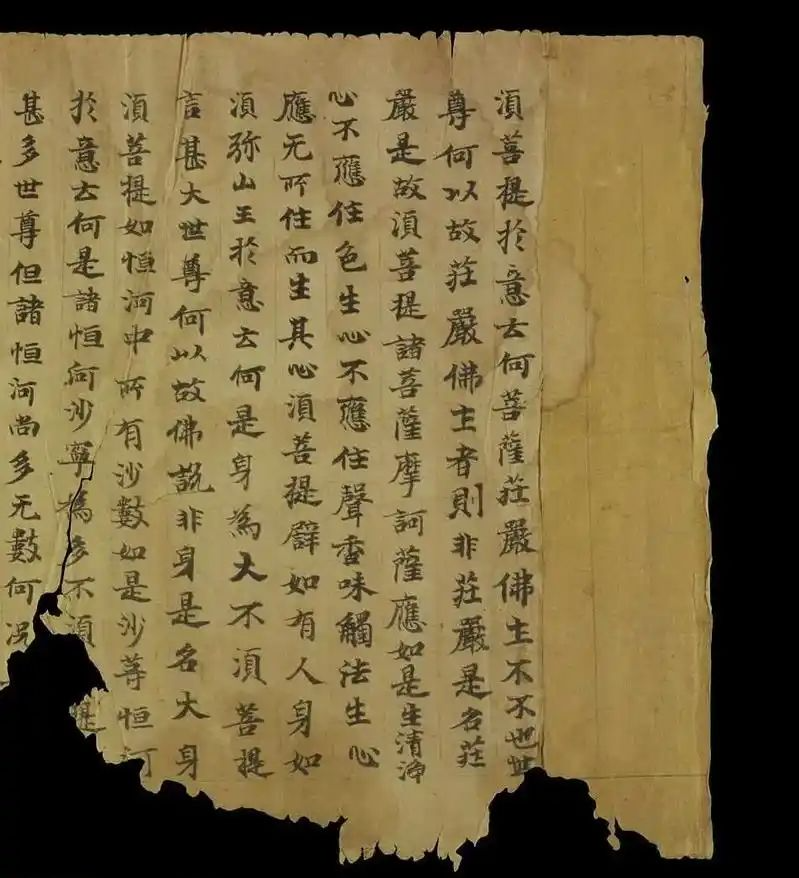 須菩提於意云何菩薩莊嚴佛土不不也世
尊何以故莊嚴佛土者則非莊嚴是名莊
嚴是故須菩提諸菩薩摩訶薩應如是生清淨
心不應住色生心不應住聲香味觸法生心
應无所住而生其心須菩提辟如有人身如
須弥山王於意云何是身為大不須菩提
言甚大世尊何以故佛說非身是名大身
須菩提如恒河中所有沙數如是沙等恒河
於意云何是諸恒河沙寧為多不須 提
甚多世尊但諸恒河尚多无數何况